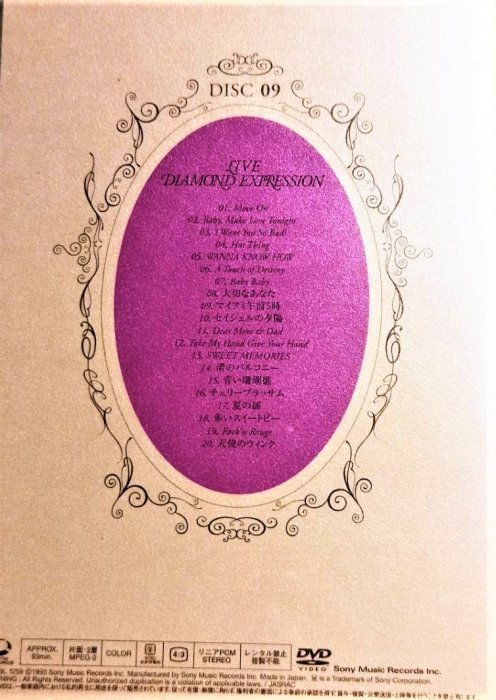 DISC 09
LIVE
DIAMOND EXPRESSION
01. Move On
02. Baby, Make Love Tonight
03. I Want You So Bad!
04. Hot Thing
05. WANNA KNOW HOW
06. A Touch of Destiny
07. Baby Baby
08. 大切なあなた
09. マイアミ午前5時
10. セイシェルの夕陽
11. Dear Mom & Dad
12. Take My Hand Give Your Hand
13. SWEET MEMORIES
14. 渚のバルコニー
15. 青い珊瑚礁
16. チェリーブラッサム
17. 夏の扉
18. 赤いスイートピー
19. Rock'n Rouge
20. 天使のウィンク
APPROX. 93min. 片面・2層 MPEG-2 COLOR 4:3 リニアPCM STEREO レンタル禁止 複製不能 DVD VIDEO Sony Music Records Inc.
1259 ©1993 Sony Music Records Inc. Manufactured by Sony Music Records Inc. Made in Japan. is a Trademark of Sony Corporation.
All Rights Reserved. Unauthorized duplication is a violation of applicable laws. / JASRAC